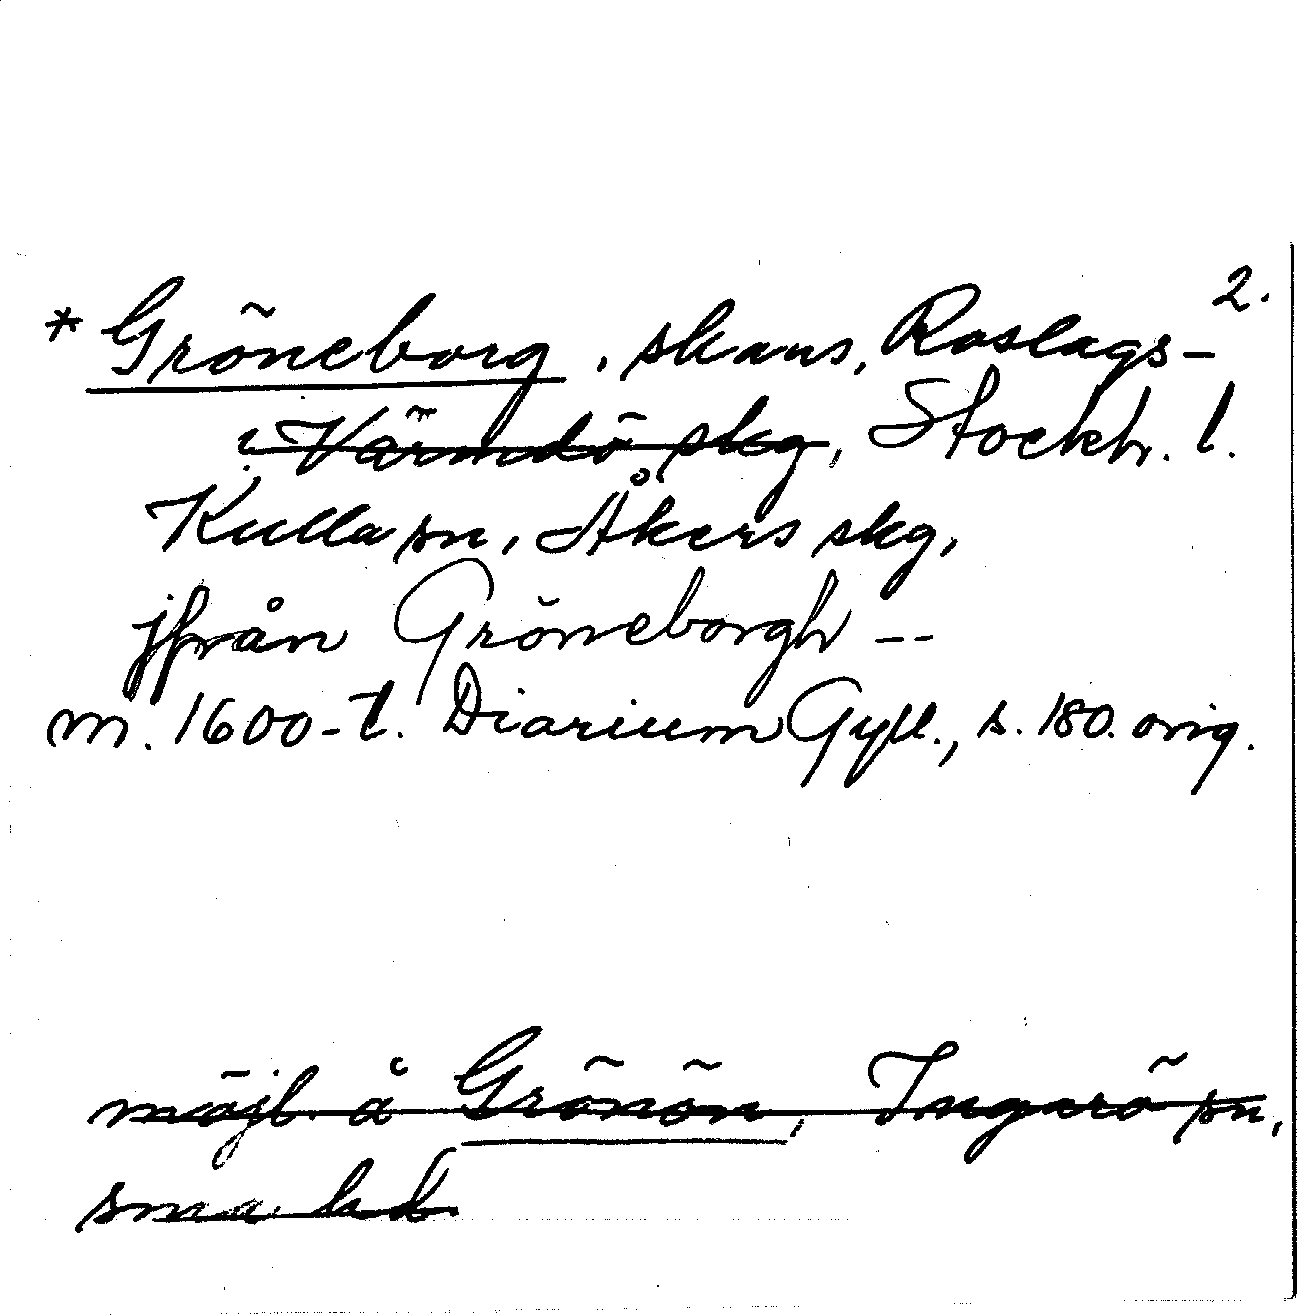 2.
* Gröneborg, skans, Roslags-
i Värmdö skg, Stockh. l.
Kulla sn, Åkers skg,
jfrån Gröneborgh --
m. 1600-t. Diarium Gyll., s. 180. orig.
möjl. å Grönön, Ingarö sn,
sma hd.